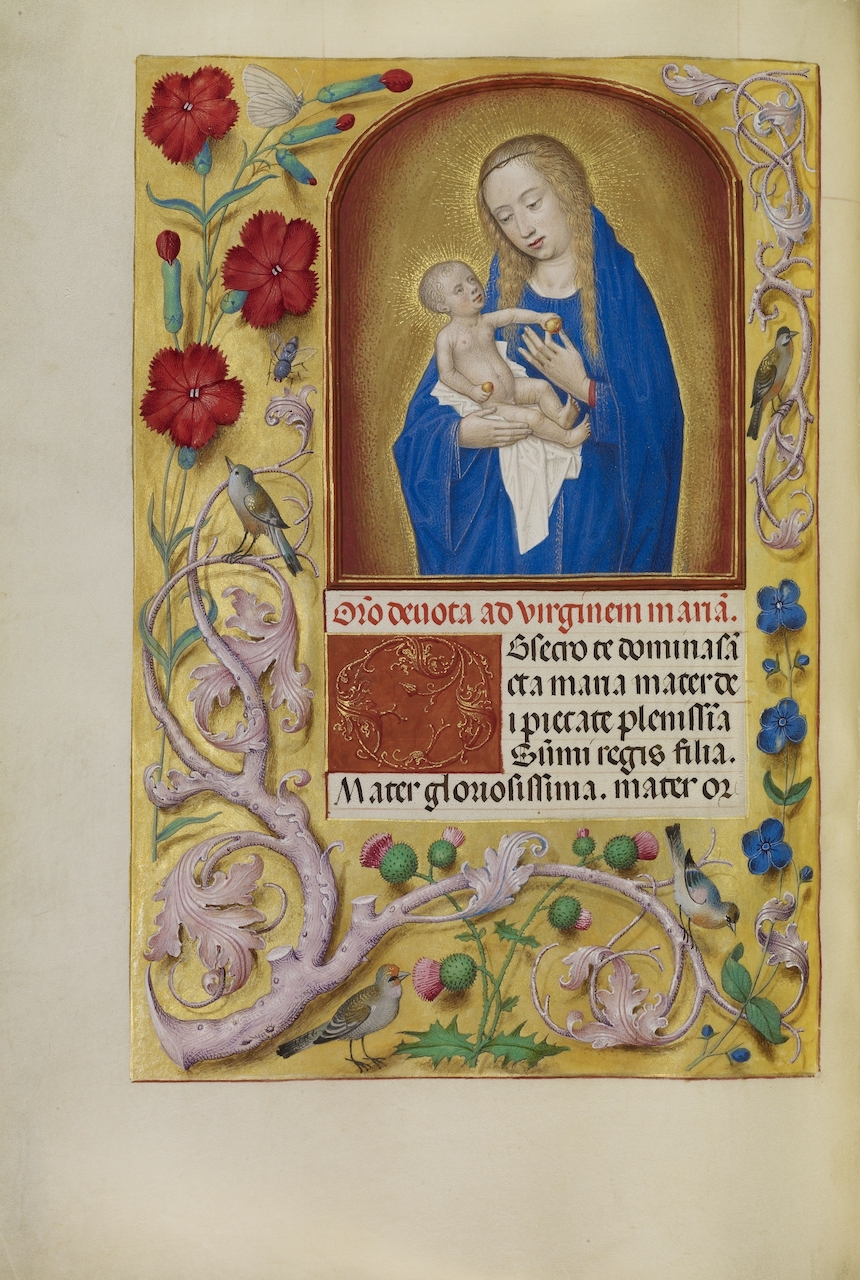 Or̄o deuota ad virginem mariā.
Obsecro te domina sā
cta maria mater de
i pietate plenissīa
Sūmi regis filia.
Mater gloriosissima. mater or